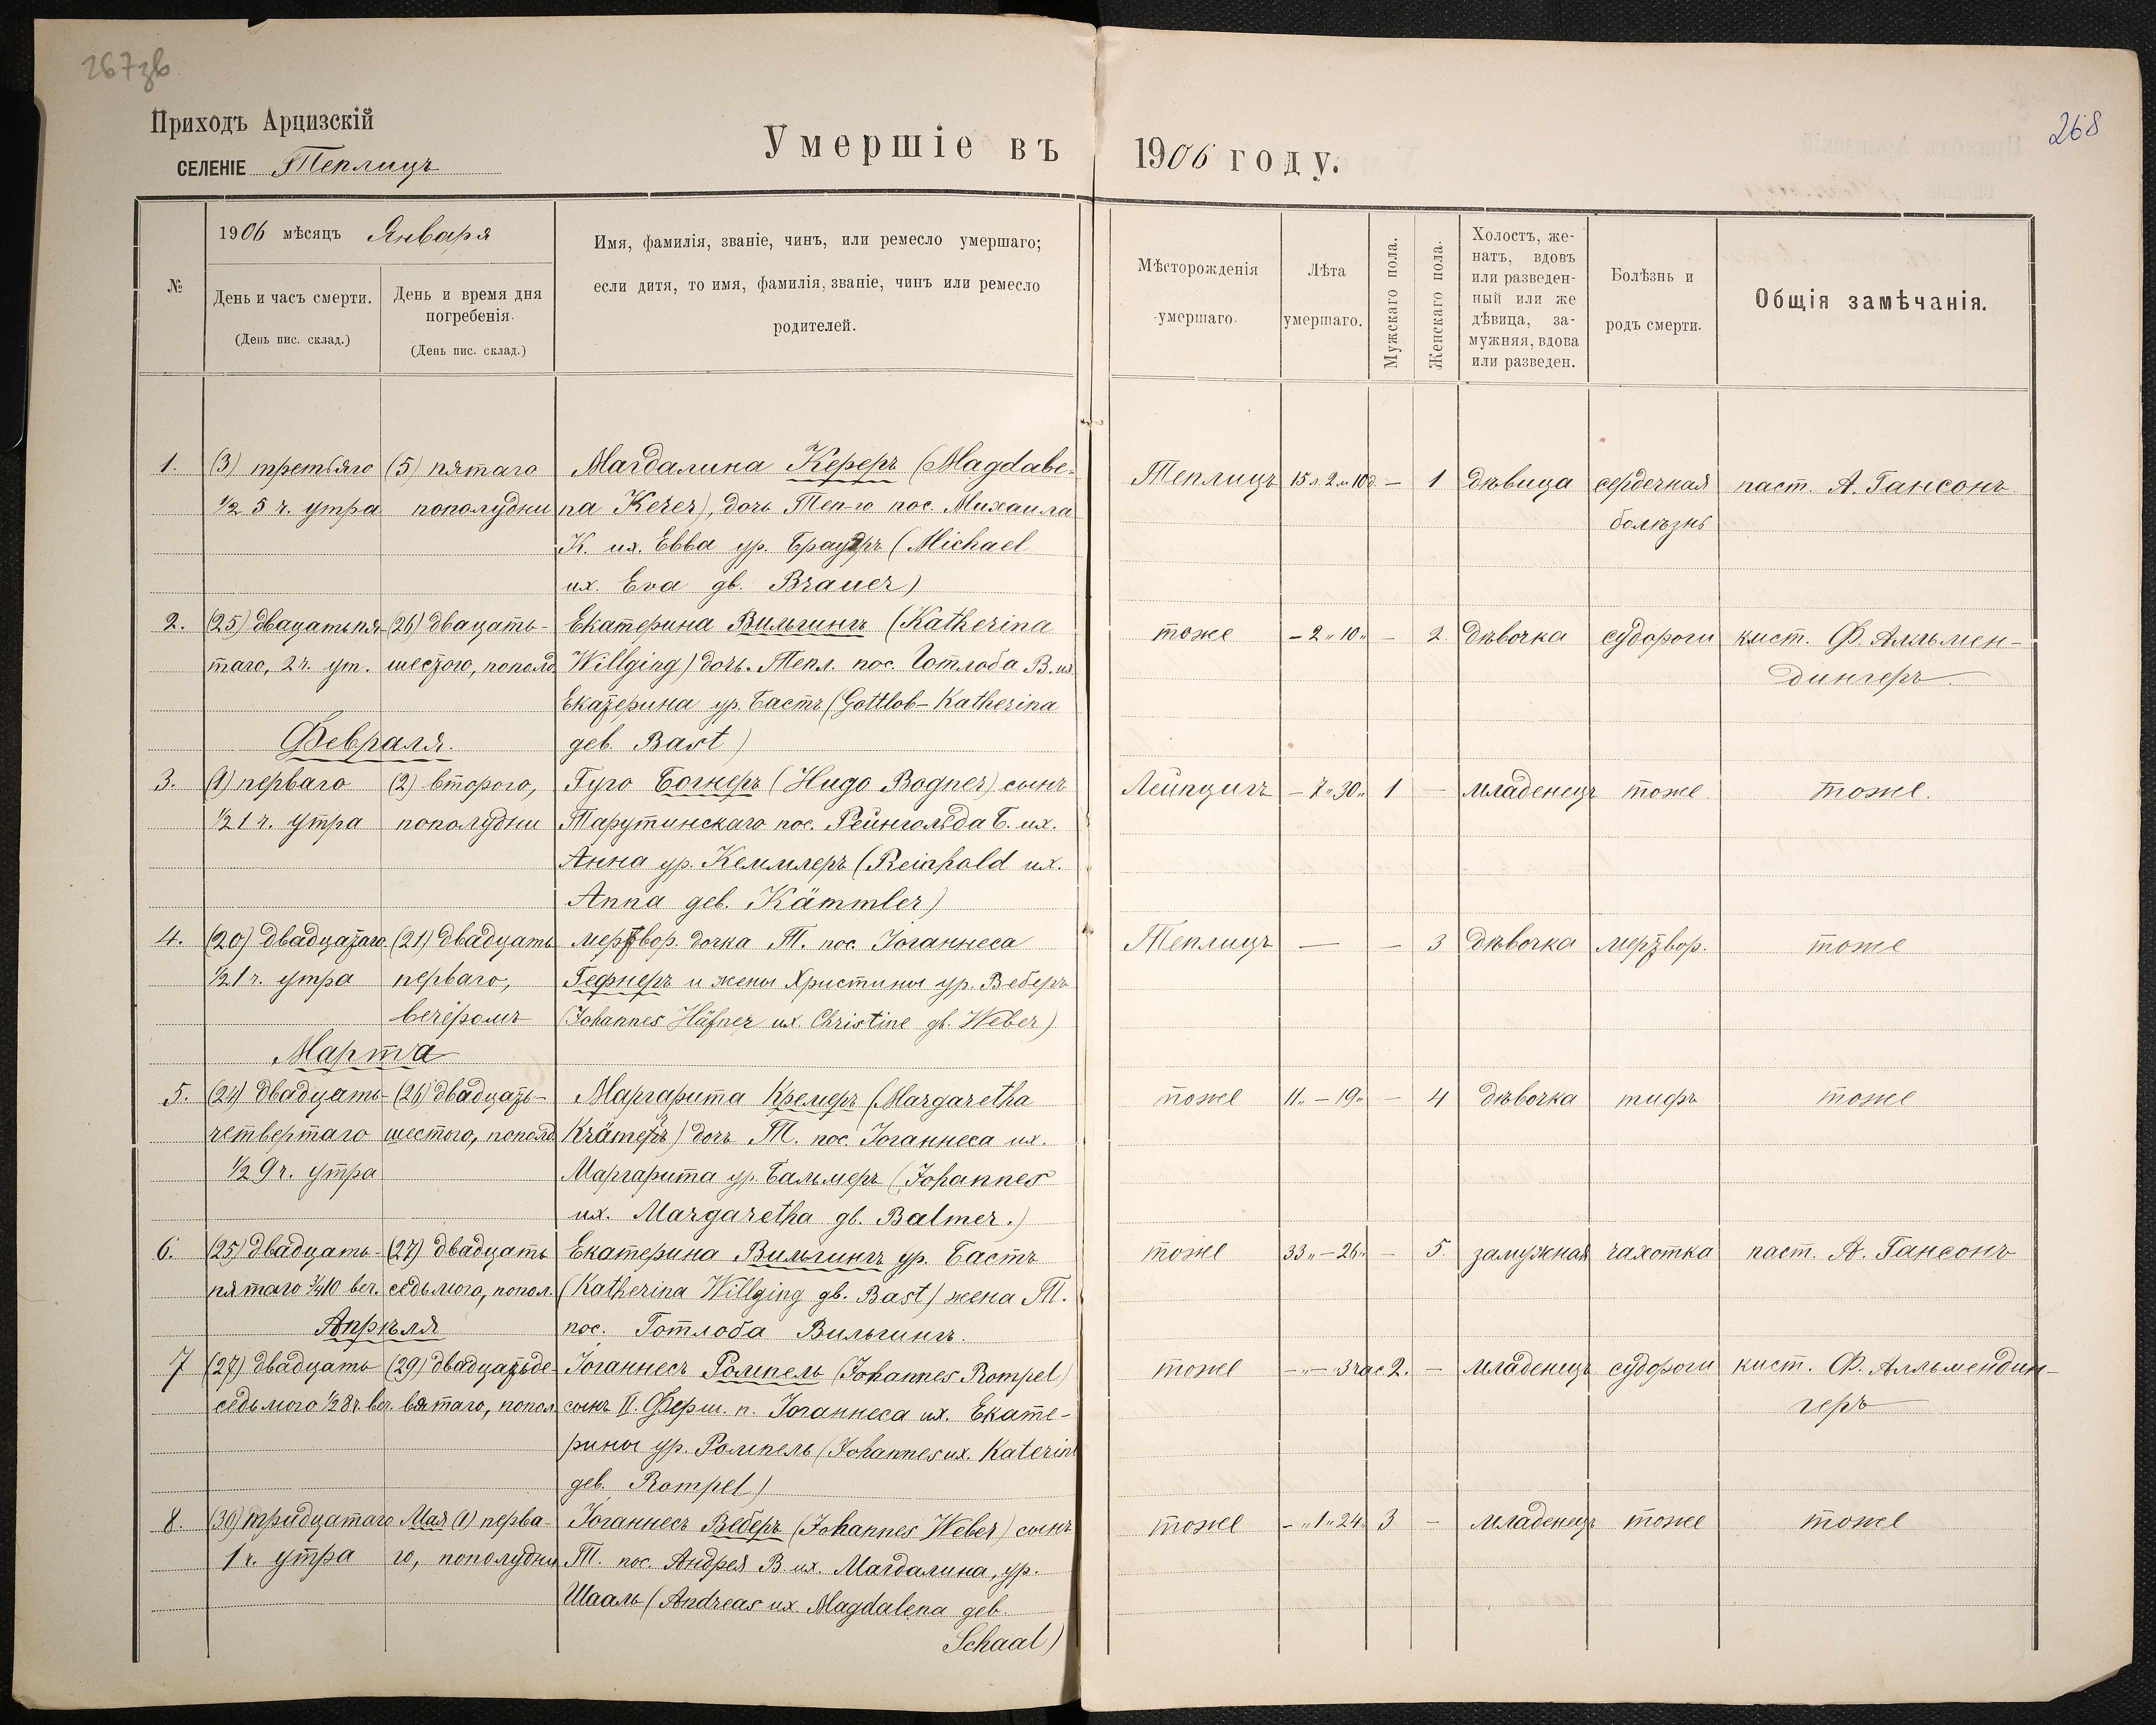 267 зв
268
Приходъ Арцизскій
СЕЛЕНІЕ Теплицъ
Умершіе въ 1906 году.
№
1906 мѣсяцъ Января
День и часъ смерти.
(День пис. склад.)
День и время дня
погребенія.
(День пис. склад.)
Имя, фамилія, званіе, чинъ, или ремесло умершаго;
если дитя, то имя, фамилія, званіе, чинъ или ремесло
родителей.
Мѣсторожденія
умершаго.
Лѣта
умершаго.
Мужскаго пола.
Женскаго пола.
Холостъ, же-
натъ, вдовъ
или разведен-
ный или же
дѣвица, за-
мужняя, вдова
или разведен.
Болѣзнь и
родъ смерти.
Общія замѣчанія.
1. (3) третьяго (5) пятаго Магдалина Кереръ (Magdale- Теплицъ 15 л. 2 м 10 д. — 1 дѣвица сердечная паст. А. Гансонъ
½ 5 ч. утра пополудни na Kerer), дочь Теп-го пос. Михаила болѣзнь
К. их. Евва ур. Брауэръ (Michael
их. Eva gb. Brauer)
2. (25) двацатьпя- (26) двацать- Екатерина Вильгингъ (Katherina тоже – 2 „ 10 „ – 2. дѣвочка судороги кист. Ф. Алльмен-
таго, 2 ч. ут. шестого, пополд Willging) дочь. Тепл. пос. Готлоба В. их дингеръ.
Екатерина ур. Бастъ (Gottlob – Katherina
Февраля. geb. Bast)
3. (1) перваго (2) второго, Гуго Богнеръ (Hugo Bogner) сынъ Лейпцигъ – 7 „ 30 „ 1 – младенецъ тоже тоже.
½ 1 ч. утра пополудни Тарутинскаго пос. Рейнгольда Б. их.
Анна ур. Кеммлеръ (Reinhold их.
Anna geb. Kämmler)
4. (20) двадцатаго (21) двадцать мертвор. дочка Т. пос. Іоганнеса Теплицъ — – 3 дѣвочка мертвор. тоже
½ 1 ч. утра перваго, Гефнеръ и жены Христины ур. Веберъ
вечеромъ (Johannes Häfner их. Christine gb. Weber)
Марта
5. (24) двадцать- (26) двадцать- Маргарита Кремеръ (Margaretha тоже 11 „ – 19 „ – 4 дѣвочка тифъ тоже
четвертаго шестого, пополд Krämer) дочь Т. пос. Іоганнеса их.
½ 9 ч. утра Маргарита ур. Бальмеръ (Johannes
их. Margaretha gb. Balmer.)
6. (25) двадцать- (27) двадцать Екатерина Вильгингъ ур. Бастъ тоже 33 „ – 26 „ – 5. замужная чахотка паст. А. Гансонъ
пятаго ¾10 веч. седьмого, попол. (Katherina Willging gb. Bast) жена Т.
Апрѣля пос. Готлоба Вильгингъ.
7 (27) двадцать (29) двадцатьде- Іоганнесъ Ромпель (Johannes Rompel) тоже – „ – 3 час 2. – младенецъ судороги кист. Ф. Алльмендин-
седьмого ½ 8 ч. веч. вятаго, попол сынъ II. Ферш. п. Іоганнеса их. Екате- геръ
рины ур. Ромпель (Johannes их. Katerina
geb. Rompel)
8. (30) тридцатаго Мая (1) перва- Іоганнесъ Веберъ (Johannes Weber) сынъ тоже – „ 1 „ 24 „ 3 – младенецъ тоже тоже
1 ч. утра го, пополудни Т. пос. Андрея В. их. Магдалина, ур.
Шааль (Andreas их. Magdalena geb.
Schaal)